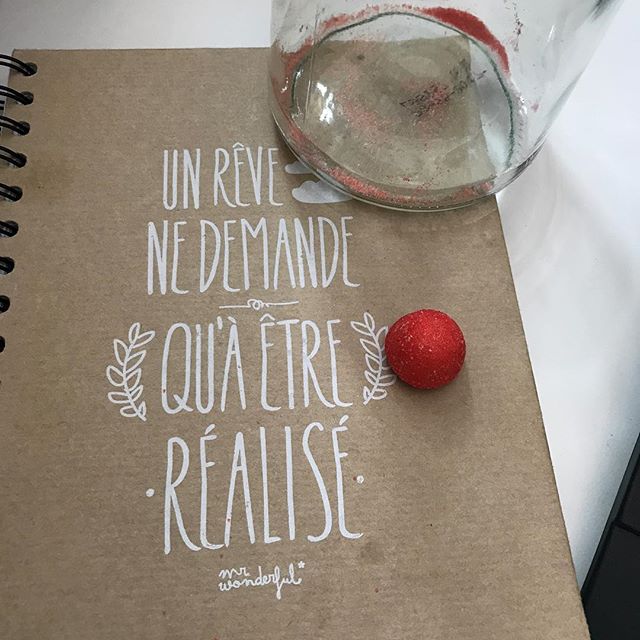 UN RÊVE
NE DEMANDE
QU'À ÊTRE
·RÉALISÉ·
mr
wonderful*